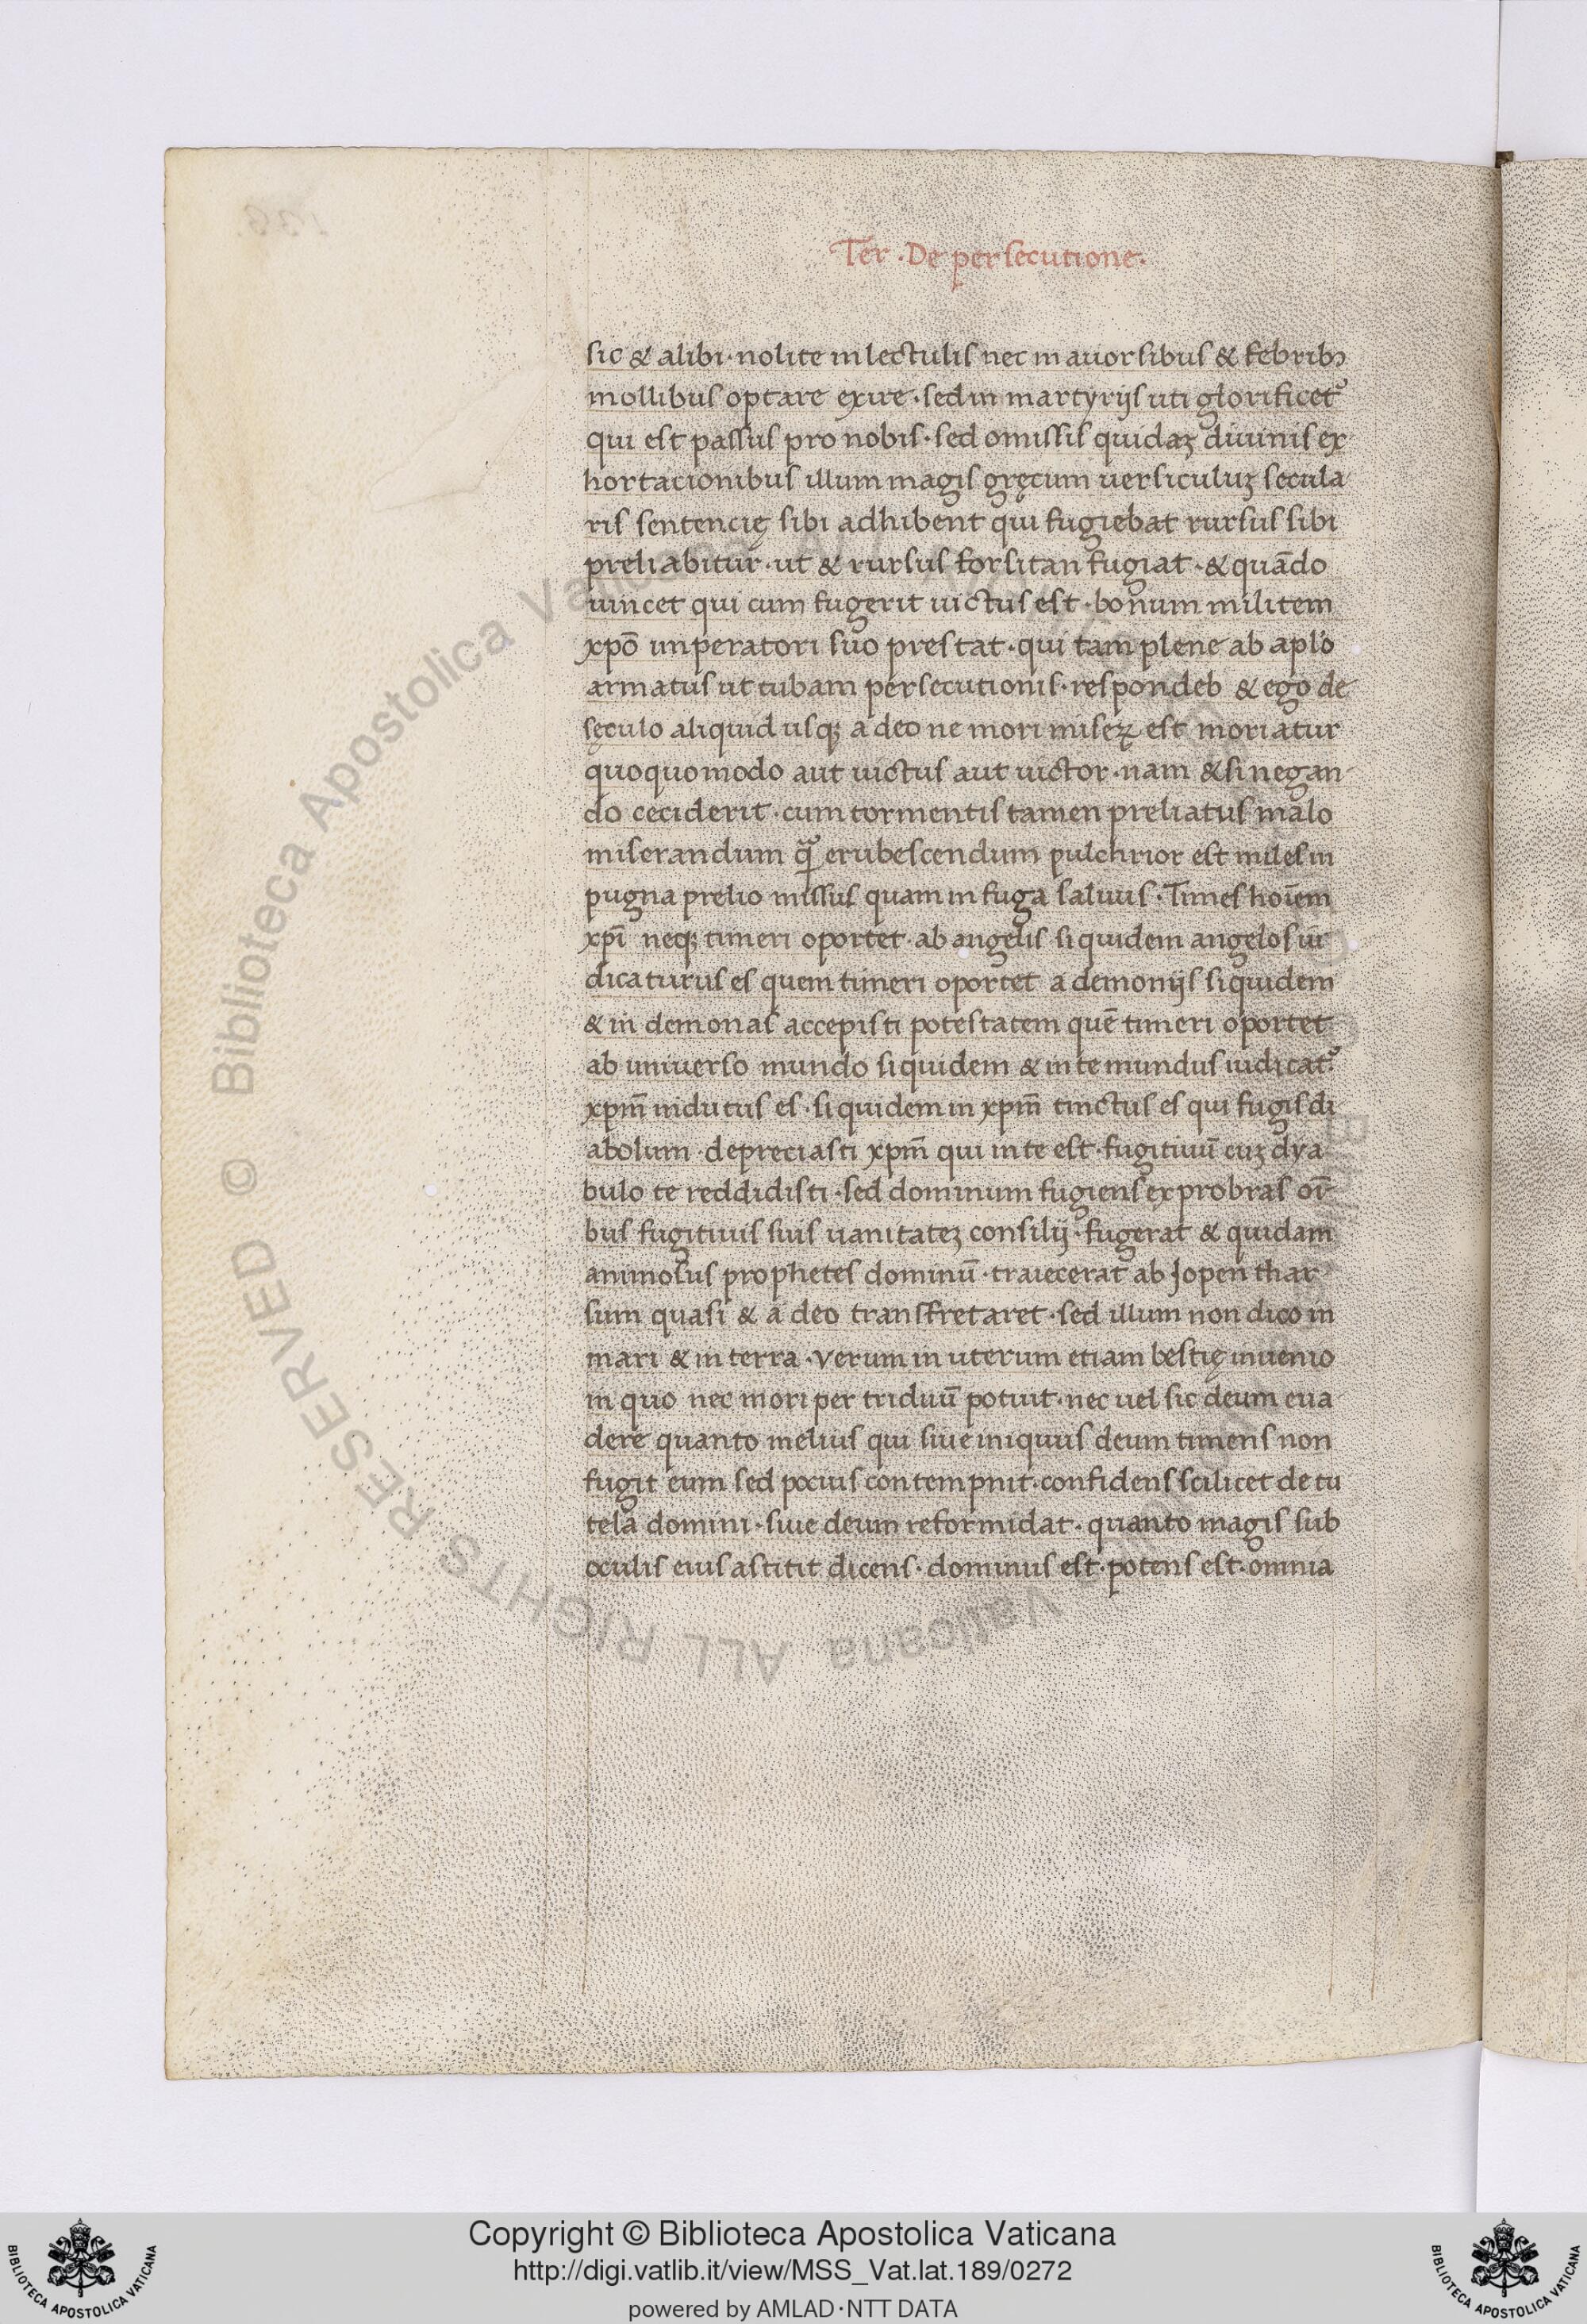 Ter · De persecutione ·
sic & alibi · nolite in lectulis nec in auorsibus & febribꝫ
mollibus optare exire · sed in martyrijs uti glorificet᷑
qui est passus pro nobis · sed omissis quidaꝫ diuinis ex
hortacionibus illum magis gręcum uersiculuꝫ secula
ris sentencię sibi adhibent qui fugiebat rursus sibi
preliabitur · ut & rursus forsitan fugiat · & quãdo
uincet qui cum fugerit uictus est · bonum militem
xpõ imperatori suo prestat · qui tam plene ab aplo
armatus ut tubam persecutionis · respondeb & ego de
sęculo aliquid usqꝫ a deo ne mori miseꝝ est moriatur
quoquomodo aut uictus aut uictor · nam & si negan
do ceciderit · cum tormentis tamen preliatus malo
miserandum q̃ erubescendum pulchrior est miles in
pugna prelio missus quam in fuga saluus · Times hoiẽm
xpĩ neqꝫ timeri oportet · ab angelis siquidem angelos iu
dicaturus es quem timeri oportet a demonijs siquidem
& in demonas accepisti potestatem quẽ timeri oportet
ab uniuerso mundo siquidem & in te mundus iudicat᷑
xpm̃ indutus es · siquidem in xpm̃ tinctus es qui fugis di
abolum · depreciasti xpm̃ qui in te est · fugitiuũ cuꝫ dya
bulo te reddidisti · sed dominum fugiens exprobras oĩ
bus fugitiuis suis uanitateꝫ consilij · fugerat & quidam
animosus prophetes dominũ · traiecerat ab Jopen thar
sum quasi & a deo transfretaret · sed illum non dico in
mari & in terra · verum in uterum etiam bestię inuenio
in quo nec mori per triduũ potuit · nec uel sic deum eua
dere quanto melius qui siue iniquus deum timens non
fugit eum sed pocius contempnit · confidens scilicet de tu
tela domini · siue deum reformidat · quanto magis sub
oculis eius astitit dicens · dominus est · potens est · omnia
© Biblioteca Apostolica Vaticana ALL RIGHTS RESERVED
Copyright © Biblioteca Apostolica Vaticana
http://digi.vatlib.it/view/MSS_Vat.lat.189/0272
powered by AMLAD·NTT DATA
BIBLIOTECA APOSTOLICA VATICANA
BIBLIOTECA APOSTOLICA VATICANA